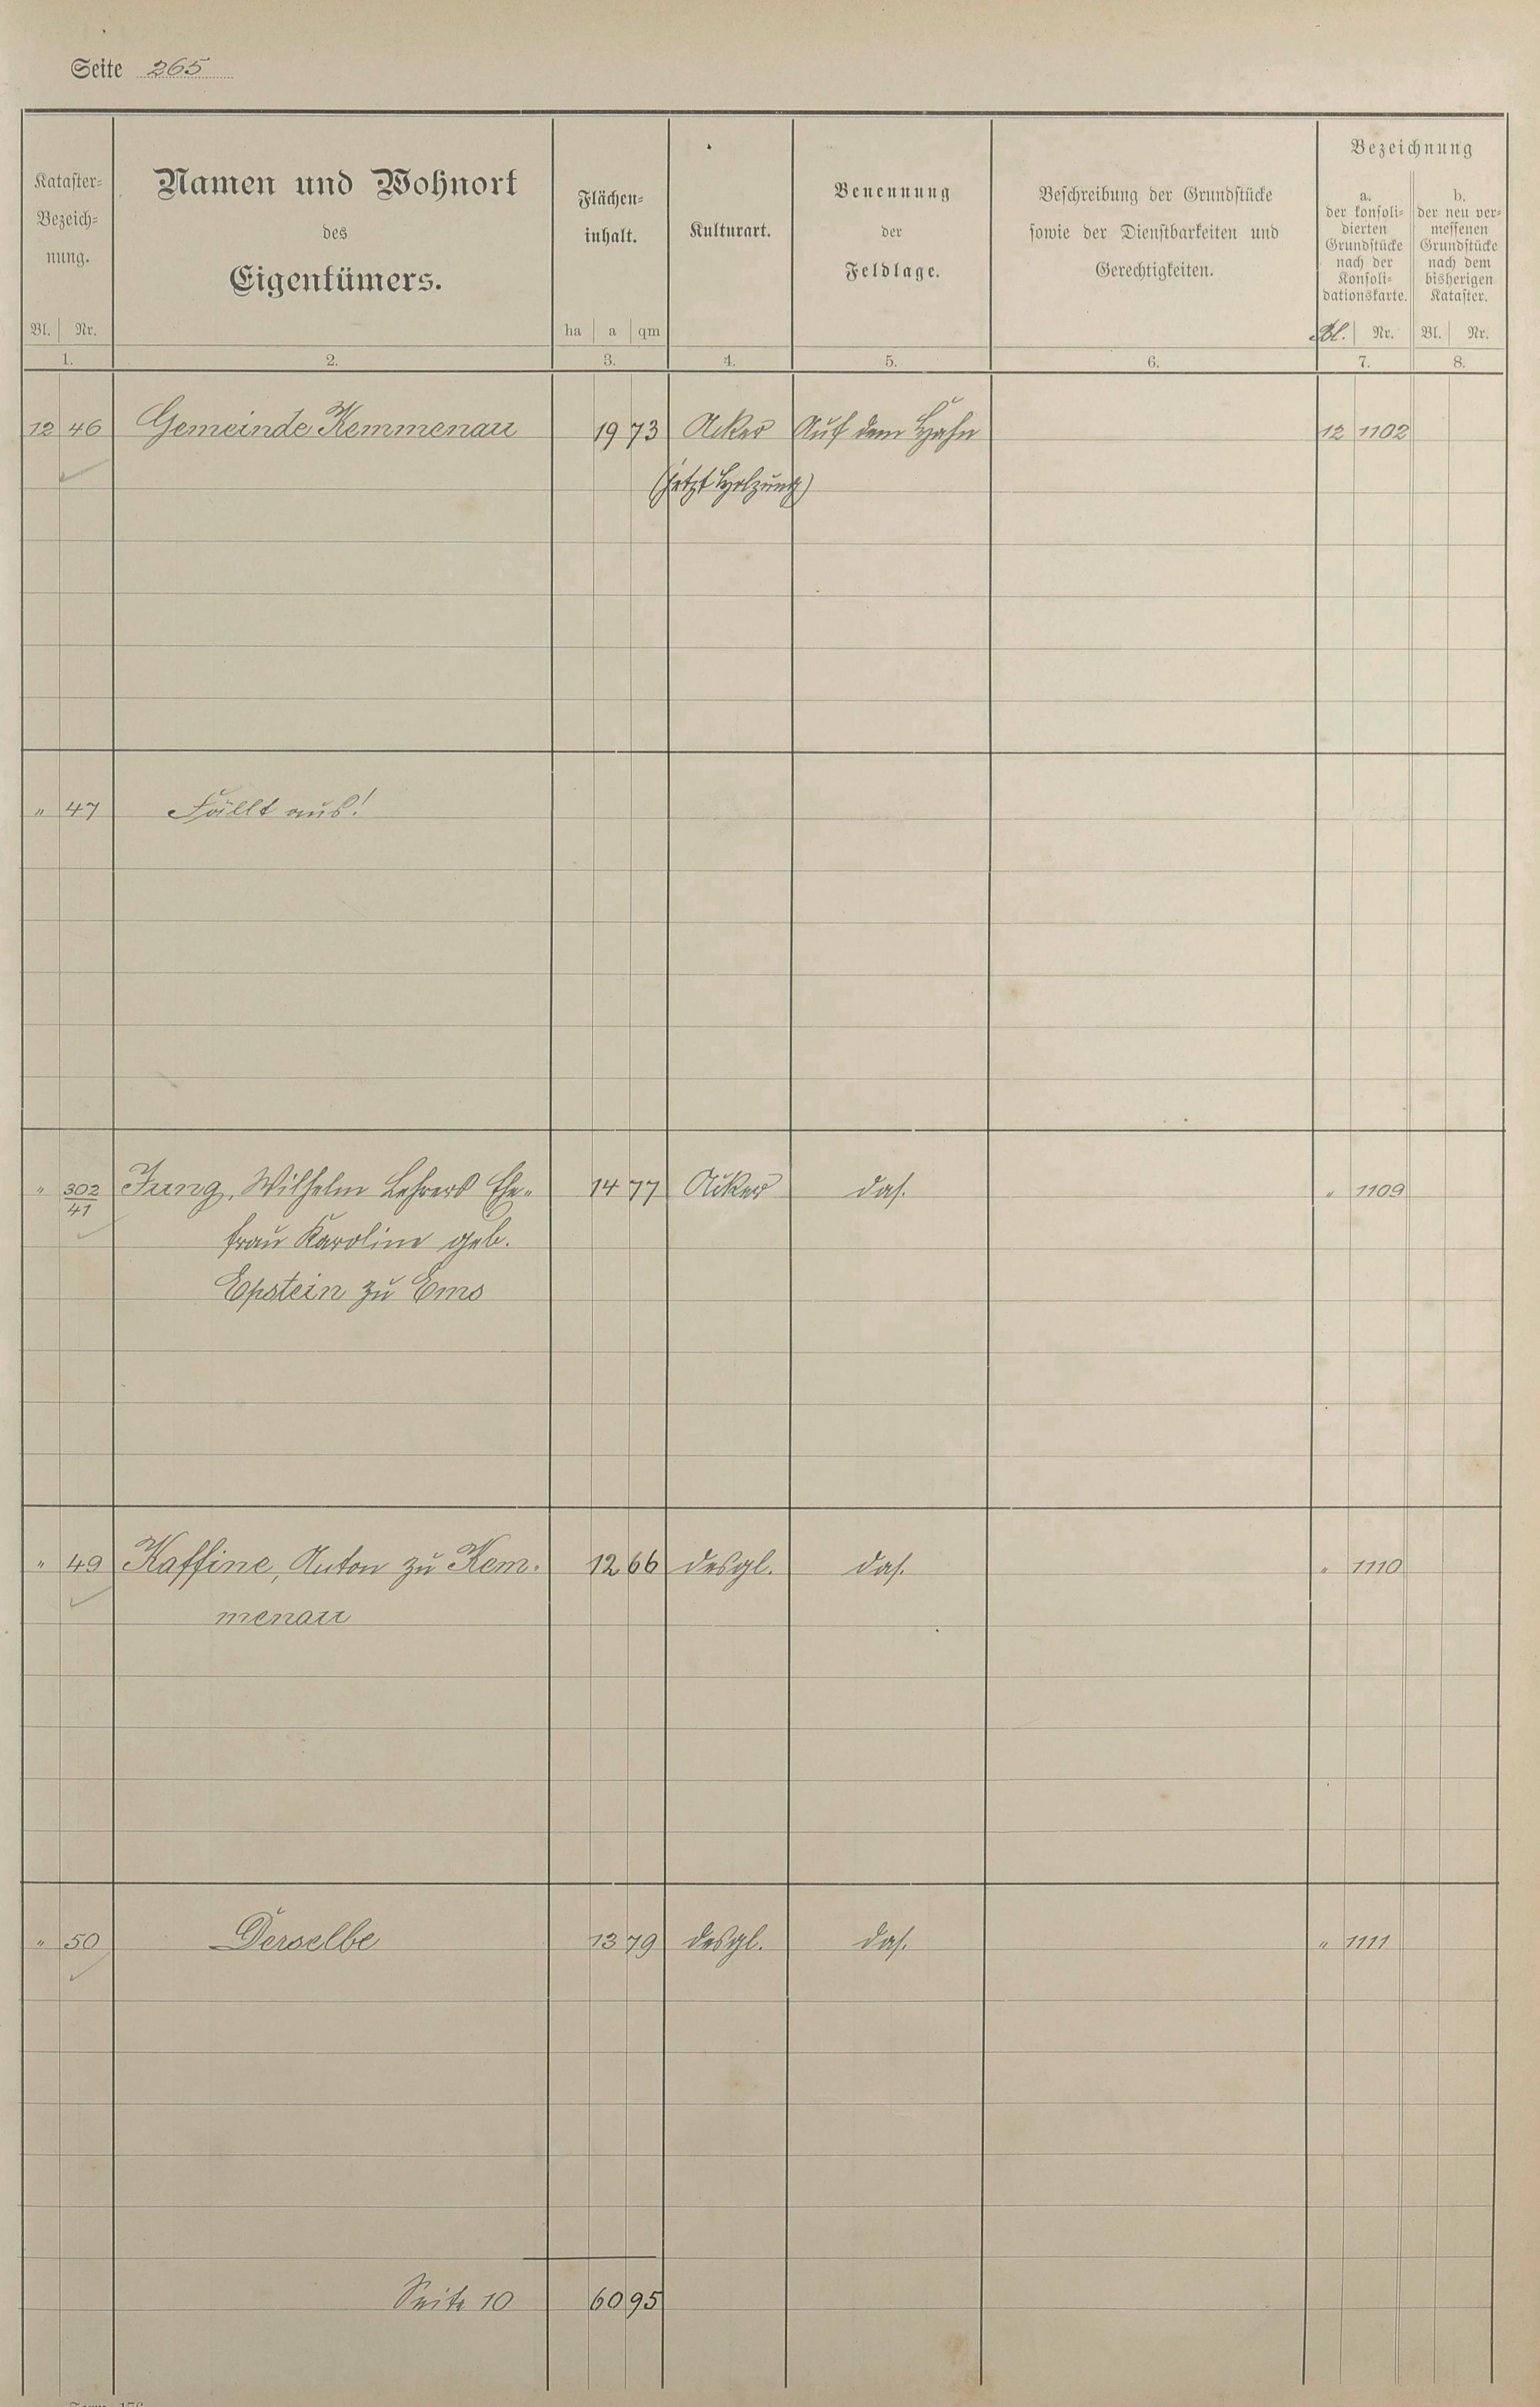 Seite 265
Kataster-
Bezeich-
nung.
Bl. Nr.
1.
Namen und Wohnort
des
Eigentümers.
2.
Flächen-
inhalt.
ha a qm
3.
Kulturart.
4.
Benennung
der
Feldlage.
5.
Beschreibung der Grundstücke
sowie der Dienstbarkeiten und
Gerechtigkeiten.
6.
Bezeichnung
a.
der konsoli-
dierten
Grundstücke
nach der
Konsoli-
dationskarte.
Bl. Nr.
7.
b.
der neu ver-
messenen
Grundstücke
nach dem
bisherigen
Kataster.
Bl. Nr.
8.
12 46 Gemeinde Kemmenau 19 73 Acker Auf dem Hahn 12 1102
(jetzt Holzung)
" 47 Fällt aus!
" 302/41 Jung, Wilhelm Lehrers Ehe- 14 77 Acker das. " 1109
frau Karoline geb.
Epstein zu Ems
" 49 Kaffine, Anton zu Kem- 12 66 desgl. das. " 1110
menau
" 50 Derselbe 13 79 desgl. das. " 1111
Seite 10 60 95